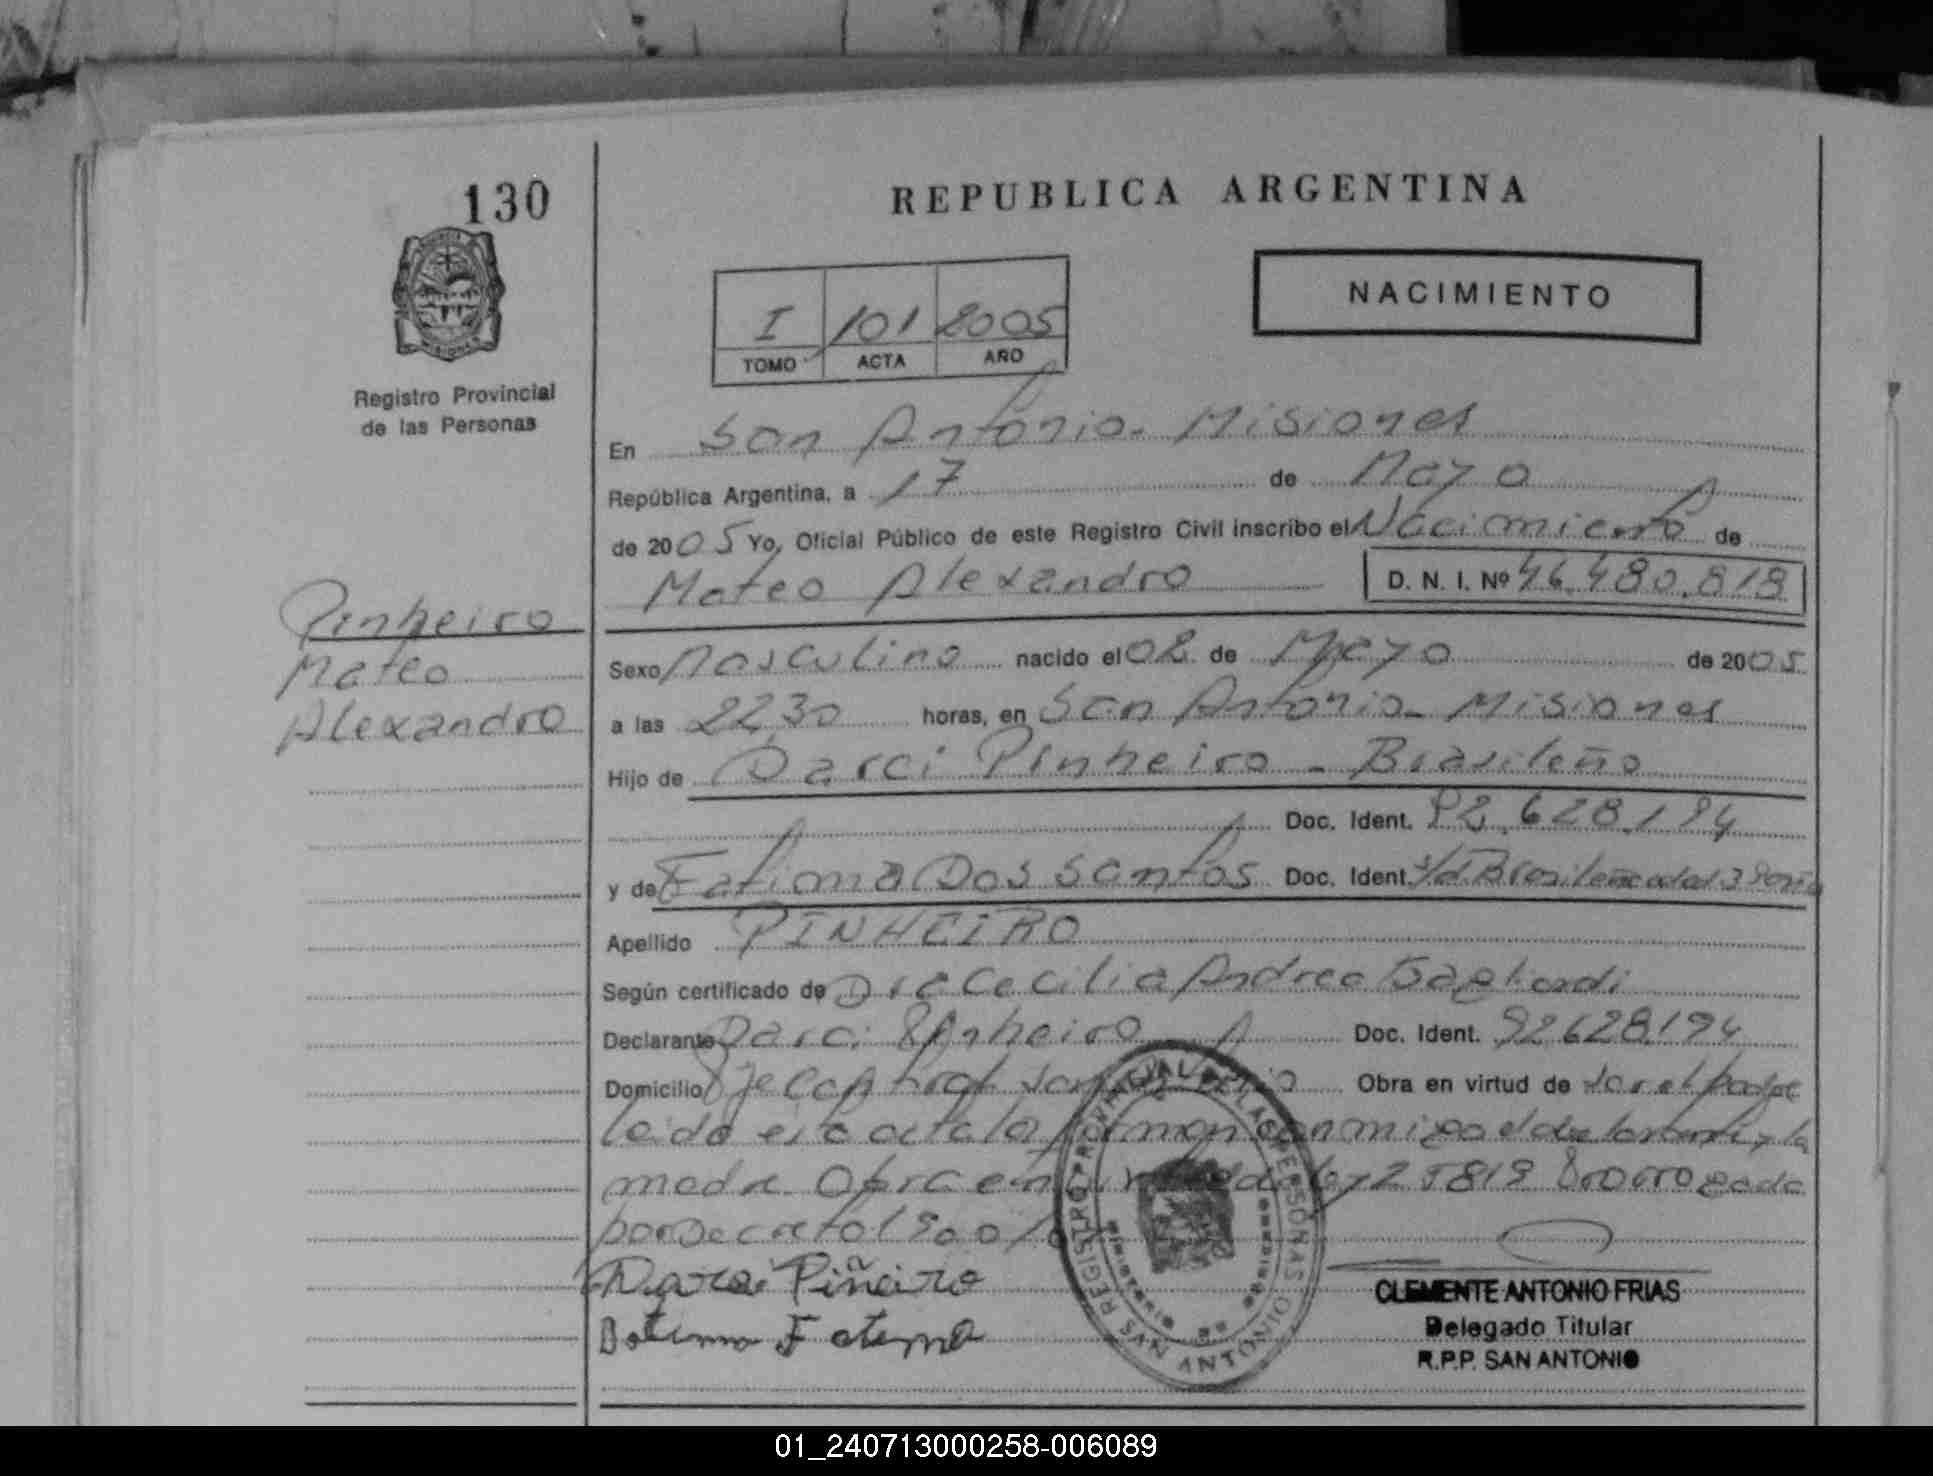 130
REPUBLICA ARGENTINA
NACIMIENTO
I 101 2005
TOMO ACTA AÑO
Registro Provincial
de las Personas
En San Antonio - Misiones
República Argentina, a 17 de Mayo
de 2005 Yo, Oficial Público de este Registro Civil inscribo el Nacimiento de
Mateo Alexandro D. N. I. Nº 46.480.818
Pinheiro
Mateo
Alexandro
Sexo Masculino nacido el 02 de Mayo de 2005
a las 22,30 horas, en San Antonio - Misiones
Hijo de Darci Pinheiro - Brasileño
Doc. Ident. 92.628.194
y de Fatima Dos Santos Doc. Ident. s/d Brasileña edad
Apellido PINHEIRO
Según certificado de Dra Cecilia Andrea Gagliardi
Declarante Darci Pinheiro Doc. Ident. 92628.194
Domicilio San Antonio Obra en virtud de ser el padre
leida esta acta la firman conmigo el declarante y la
madre Obra en virtud de ley 25819 Prorrogada
por Decreto
Darci Piñeiro
Fatima
REGISTRO PROVINCIAL DE LAS PERSONAS
SAN ANTONIO
CLEMENTE ANTONIO FRIAS
Delegado Titular
R.P.P. SAN ANTONIO
01_240713000258-006089